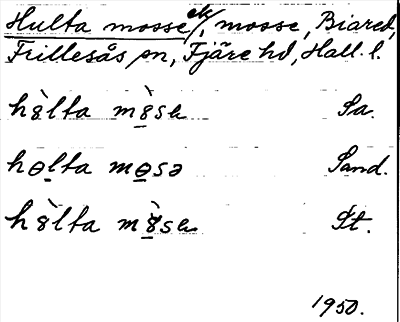 Hulta mosse ek/, mosse, Biared,
Frillesås sn, Fjäre hd, Hall. l.
hòlta mò̱sɐ Sa.
hɵ̱lta mɵ̱sə Sand.
h8̀lta m8̱̀sɐ St.
1950.